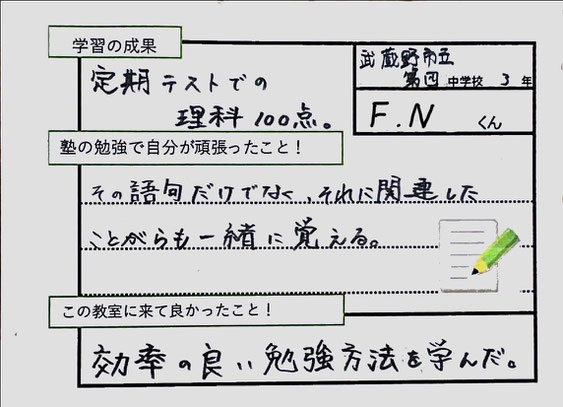 学習の成果
武蔵野市立
第四中学校 3年
定期テストでの
理科100点。
F.N くん
塾の勉強で自分が頑張ったこと！
その語句だけでなく、それに関連した
ことがらも一緒に覚える。
この教室に来て良かったこと！
効率の良い勉強方法を学んだ。